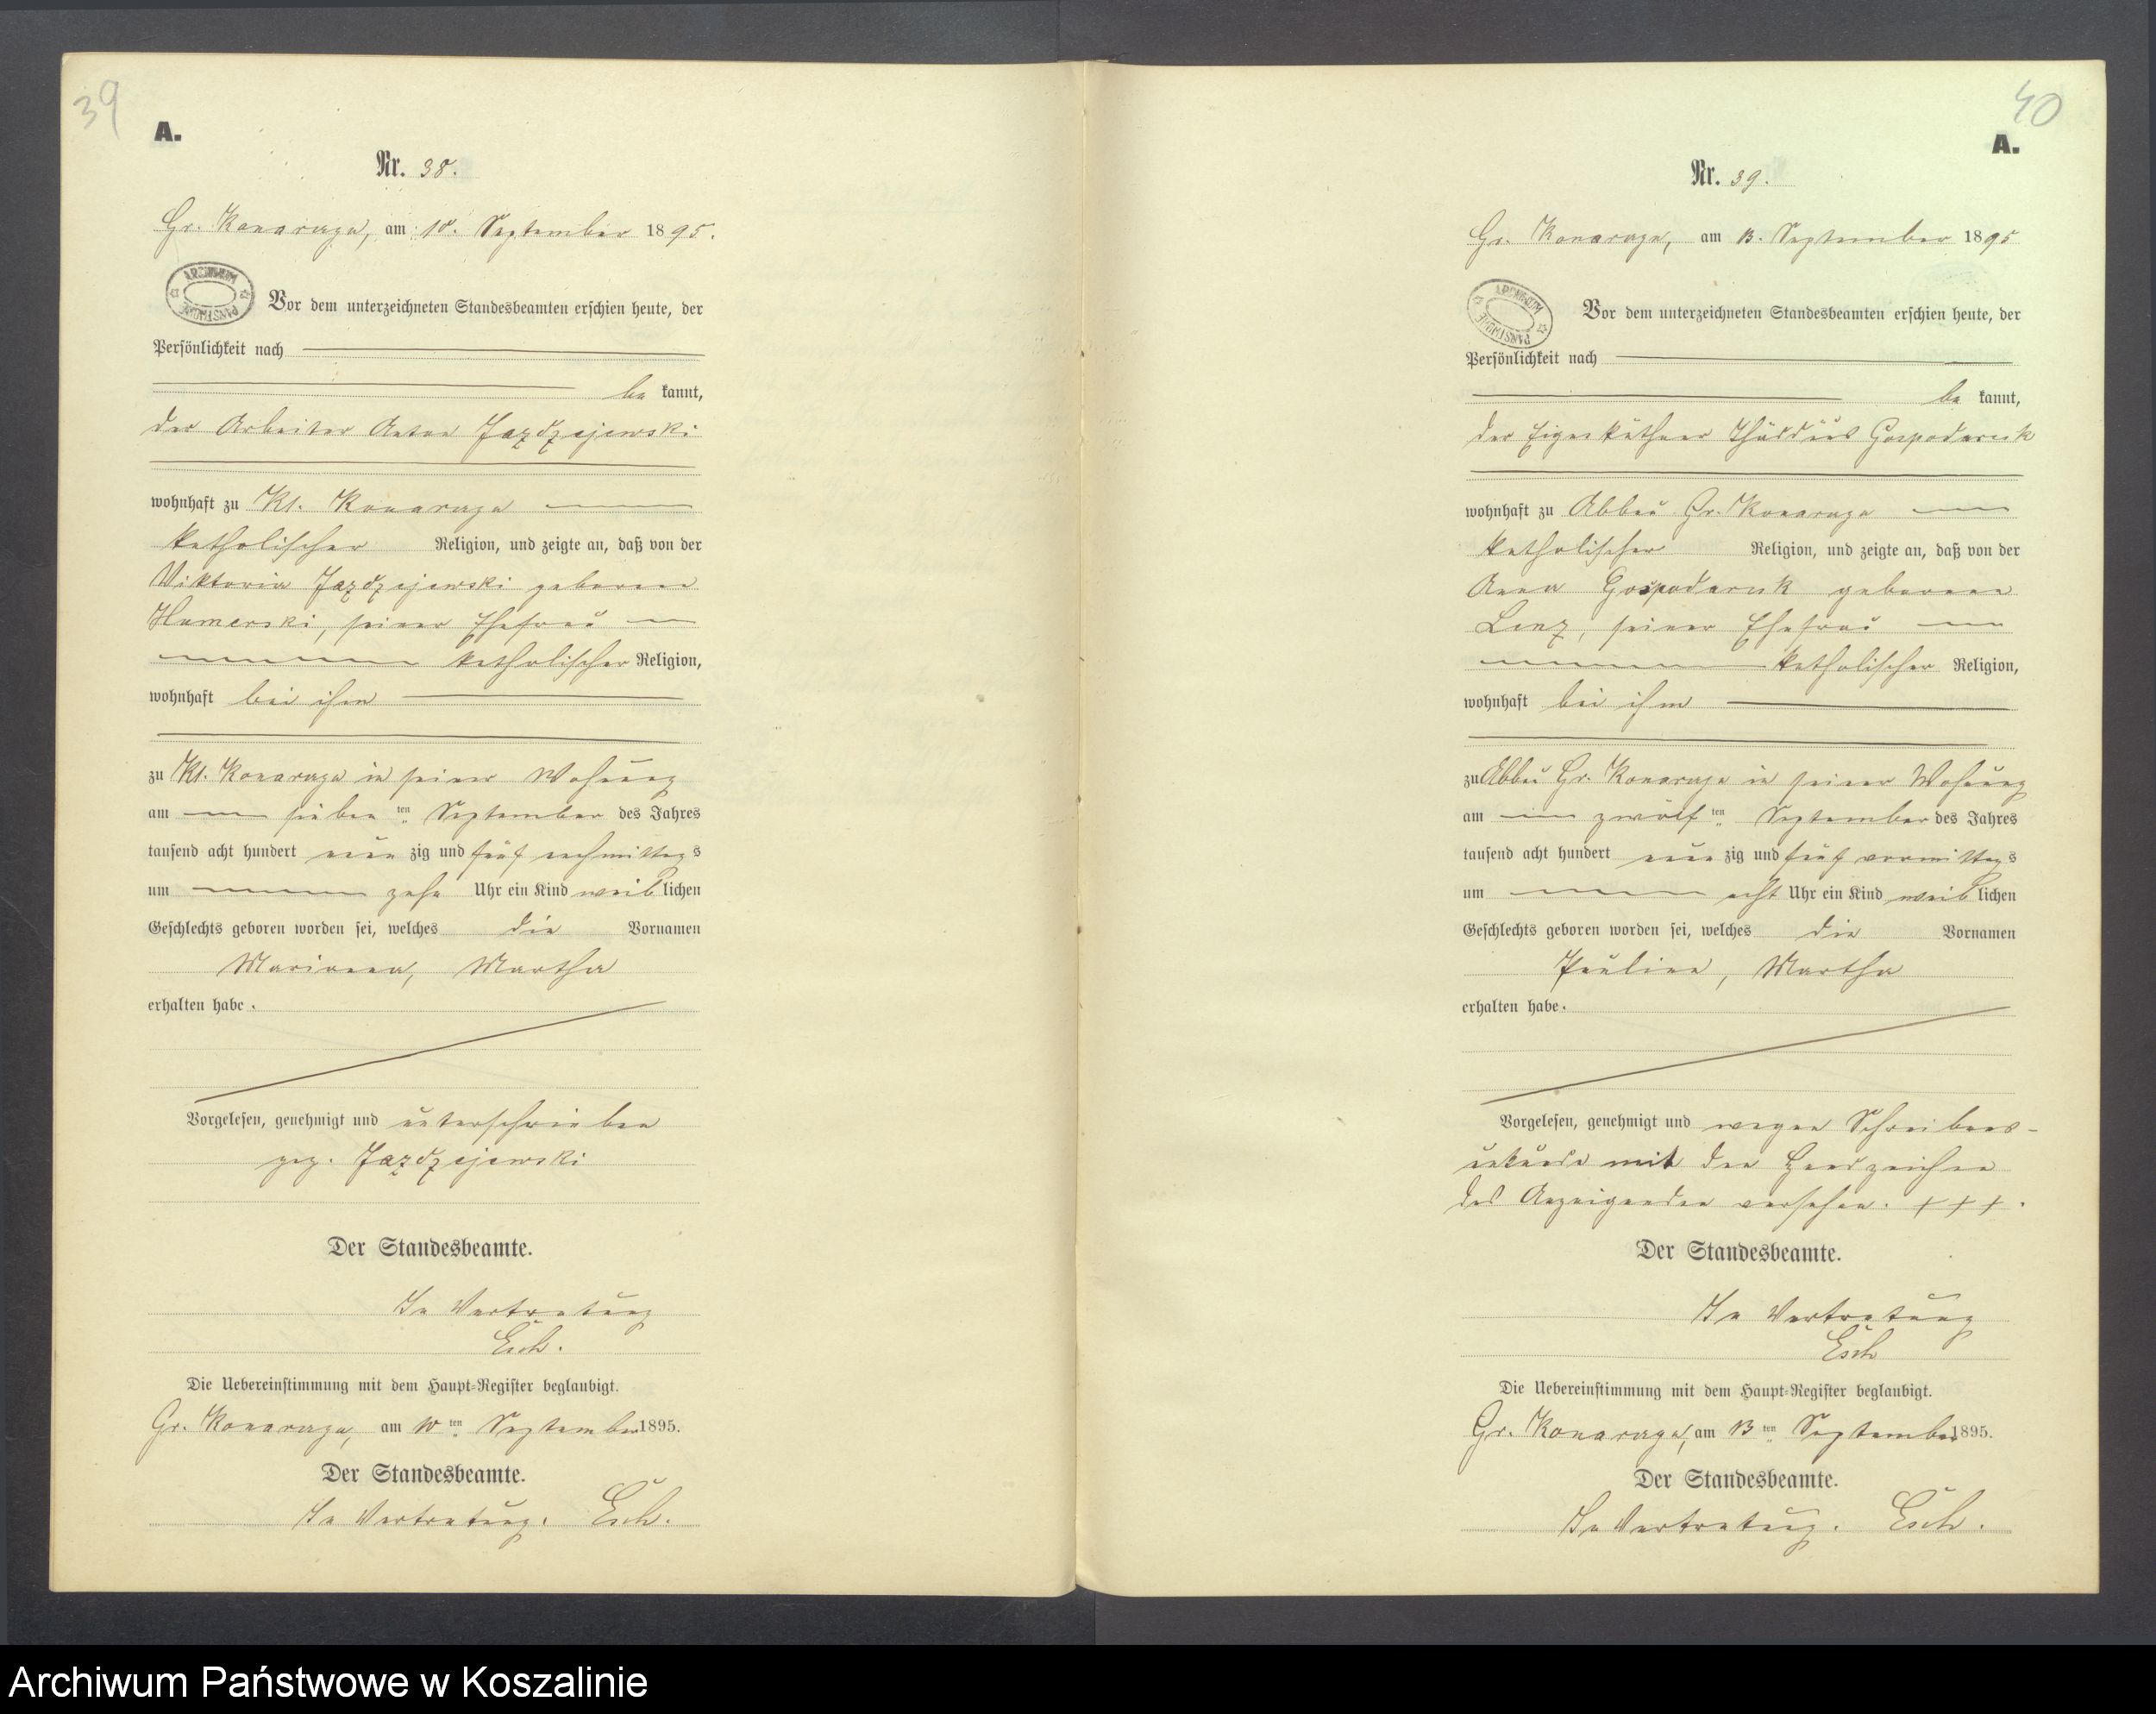 39
A.
Nr. 38.
Gr. Konarczyn, am 10. September 1895.
ARCHIWUM PAŃSTWOWE
Vor dem unterzeichneten Standesbeamten erschien heute, der
Persönlichkeit nach
be kannt,
der Arbeiter Anton Jazdzejewski
wohnhaft zu Kl. Konarczyn
katholischer Religion, und zeigte an, daß von der
Viktoria Jazdzejewski geborene
Hamerski, seiner Ehefrau
katholischer Religion,
wohnhaft bei ihm
zu Kl. Konarczyn in seiner Wohnung
am sieben ten September des Jahres
tausend acht hundert neun zig und fünf nachmittags
um zehn Uhr ein Kind weiblichen
Geschlechts geboren worden sei, welches die Vornamen
Marianna, Martha
erhalten habe.
Vorgelesen, genehmigt und unterschrieben
gez. Jazdzejewski
Der Standesbeamte.
In Vertretung
Esch.
Die Uebereinstimmung mit dem Haupt-Register beglaubigt.
Gr. Konarczyn, am 10ten September 1895.
Der Standesbeamte.
In Vertretung. Esch.
40
A.
Nr. 39.
Gr. Konarczyn, am 13. September 1895
ARCHIWUM PAŃSTWOWE
Vor dem unterzeichneten Standesbeamten erschien heute, der
Persönlichkeit nach
be kannt,
der Eigenkäthner Thäddäus Gospodarek
wohnhaft zu Abbau Gr. Konarczyn
katholischer Religion, und zeigte an, daß von der
Anna Gospodarek geborene
Linz, seiner Ehefrau
katholischer Religion,
wohnhaft bei ihm
zu Abbau Gr. Konarczyn in seiner Wohnung
am zwölf ten September des Jahres
tausend acht hundert neun zig und fünf vormittags
um acht Uhr ein Kind weiblichen
Geschlechts geboren worden sei, welches die Vornamen
Pauline, Martha
erhalten habe.
Vorgelesen, genehmigt und wegen Schreibens-
unkunde mit den Handzeichen
des Anzeigenden versehen. + + + .
Der Standesbeamte.
In Vertretung
Esch
Die Uebereinstimmung mit dem Haupt-Register beglaubigt.
Gr. Konarczyn, am 13ten September 1895.
Der Standesbeamte.
In Vertretung. Esch.
Archiwum Państwowe w Koszalinie